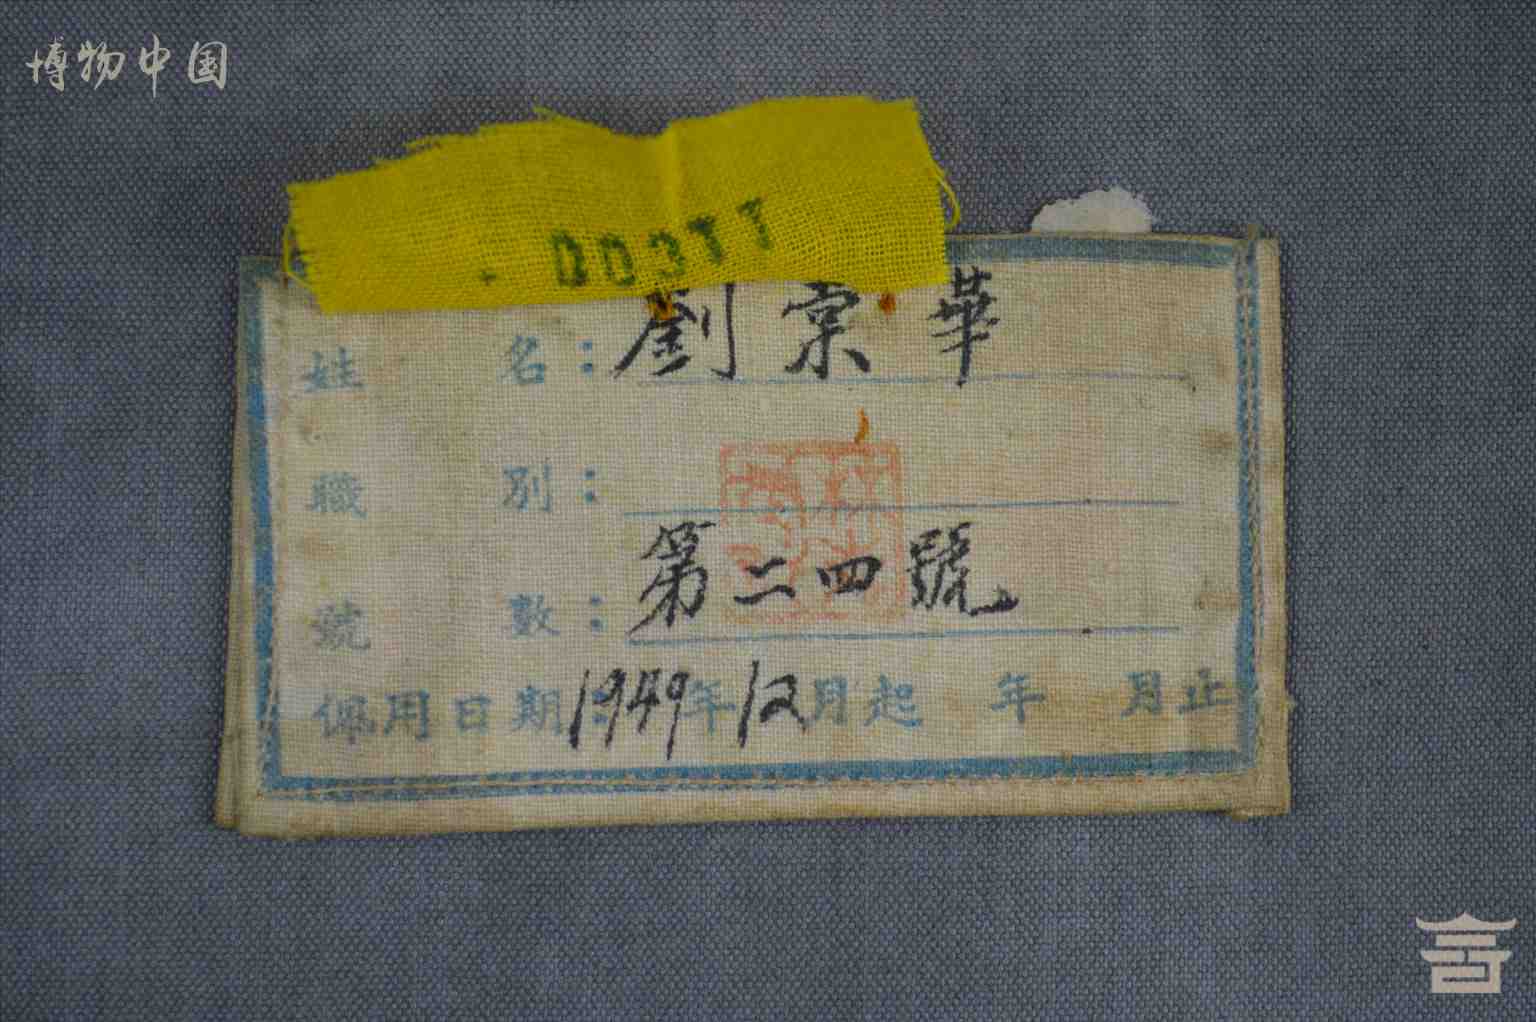 博物中国
00377
姓 名：劉宗華
職 別：
號 數：第二四號
佩用日期：1949年12月起 年 月止